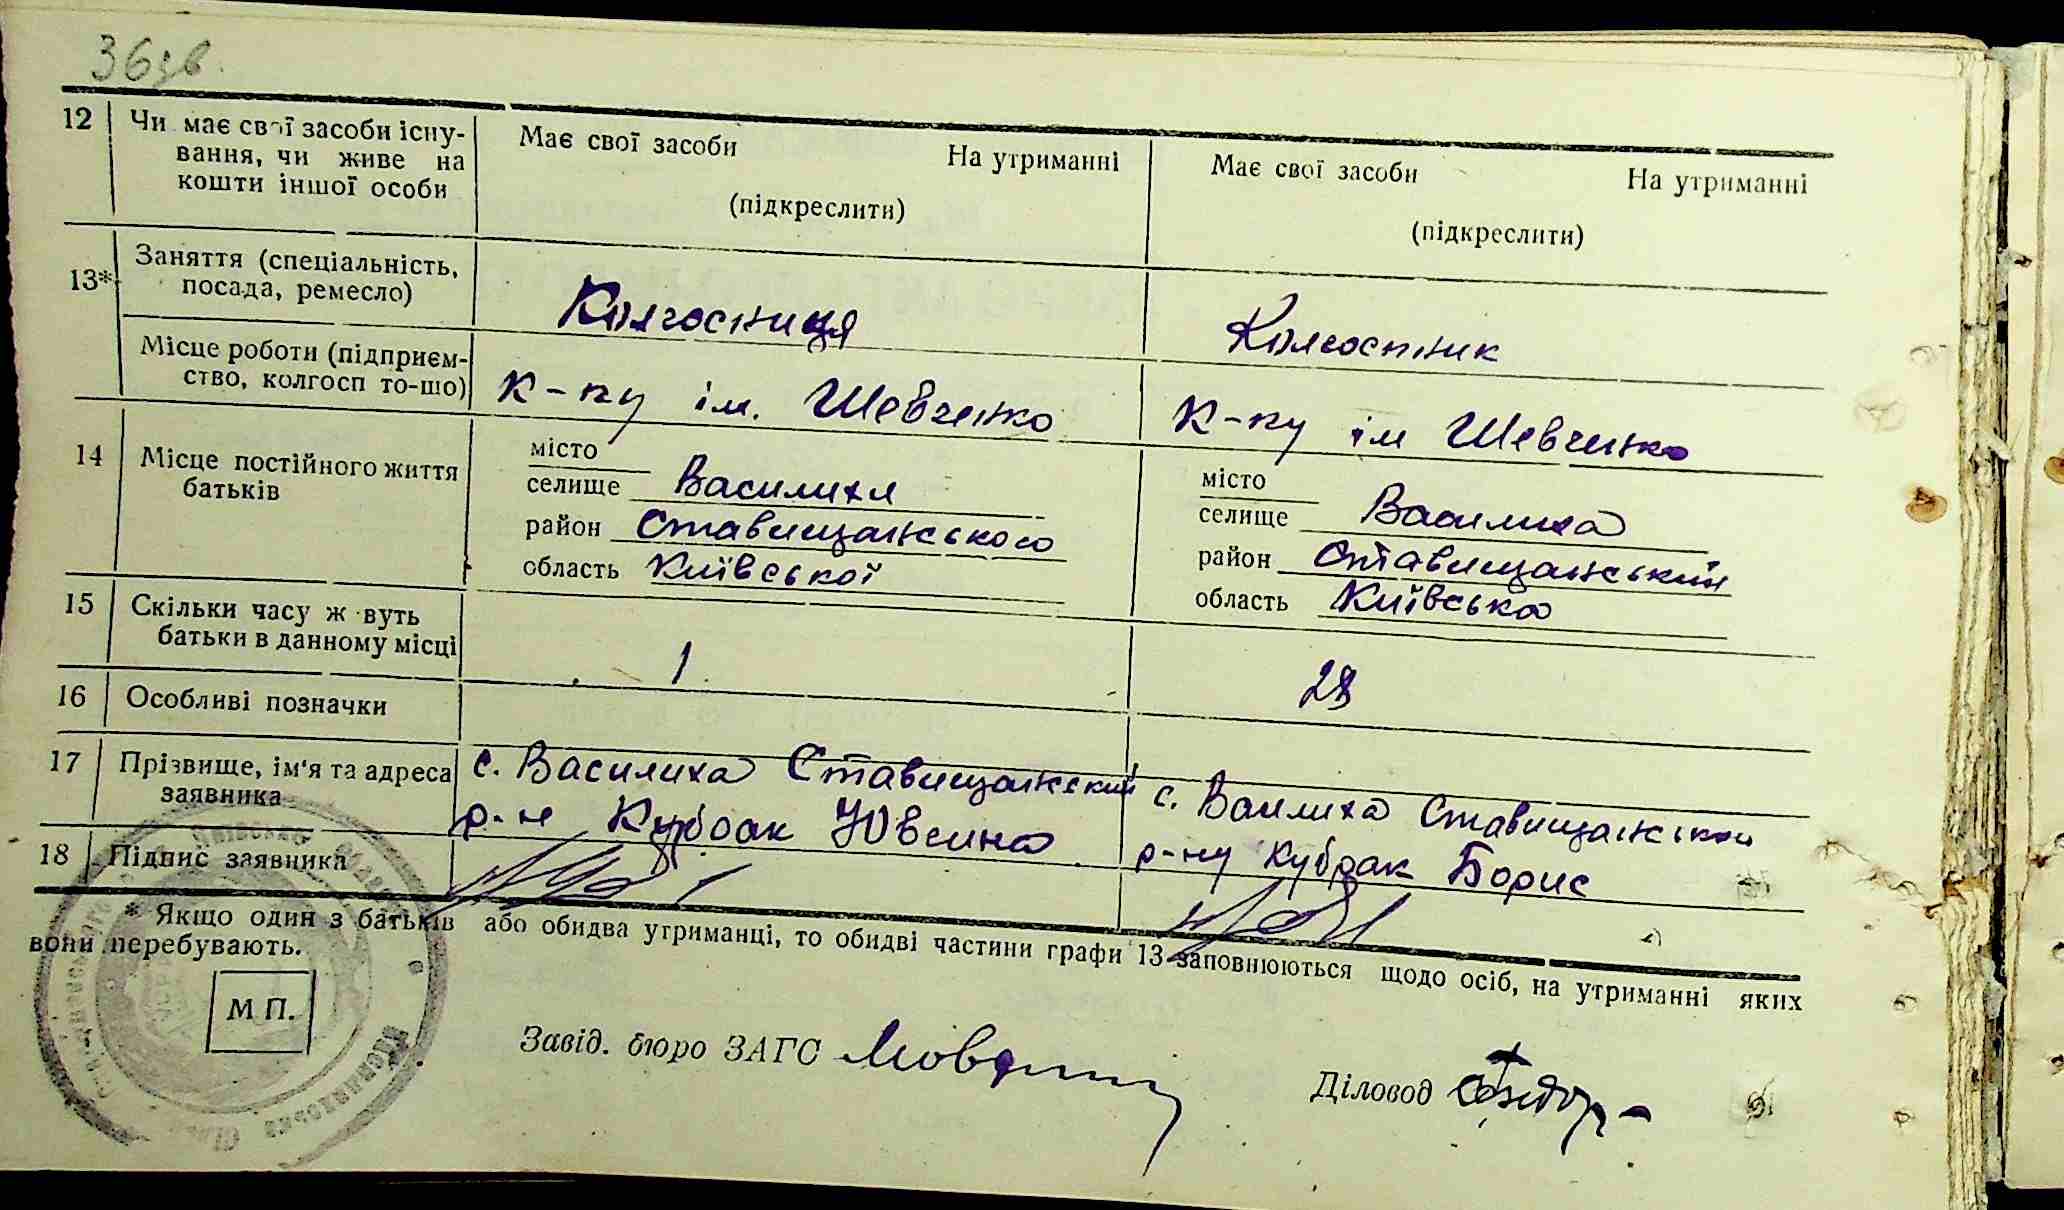 36зв.
12 Чи має свої засоби існу- Має свої засоби На утриманні Має свої засоби На утриманні
вання, чи живе на
кошти іншої особи (підкреслити) (підкреслити)
13* Заняття (спеціальність, Колгосниця Колгоспник
посада, ремесло)
Місце роботи (підприєм- к-пу ім. Шевченко к-пу ім Шевченко
ство, колгосп то-що)
14 Місце постійного життя місто місто
батьків селище Василиха селище Василиха
район Ставищанського район Ставищанський
область Київської область Київська
15 Скільки часу ж вуть 1 28
батьки в данному місці
16 Особливі позначки
17 Прізвище, ім'я та адреса с. Василиха Ставищанский с. Василиха Ставищанськои
заявника р-н Кубрак р-ну Кубрак Борис
18 Підпис заявника
* Якщо один з батьків або обидва утриманці, то обидві частини графи 13 заповнюються щодо осіб, на утриманні яких
вони перебувають.
М П.
Завід. бюро ЗАГС
Діловод